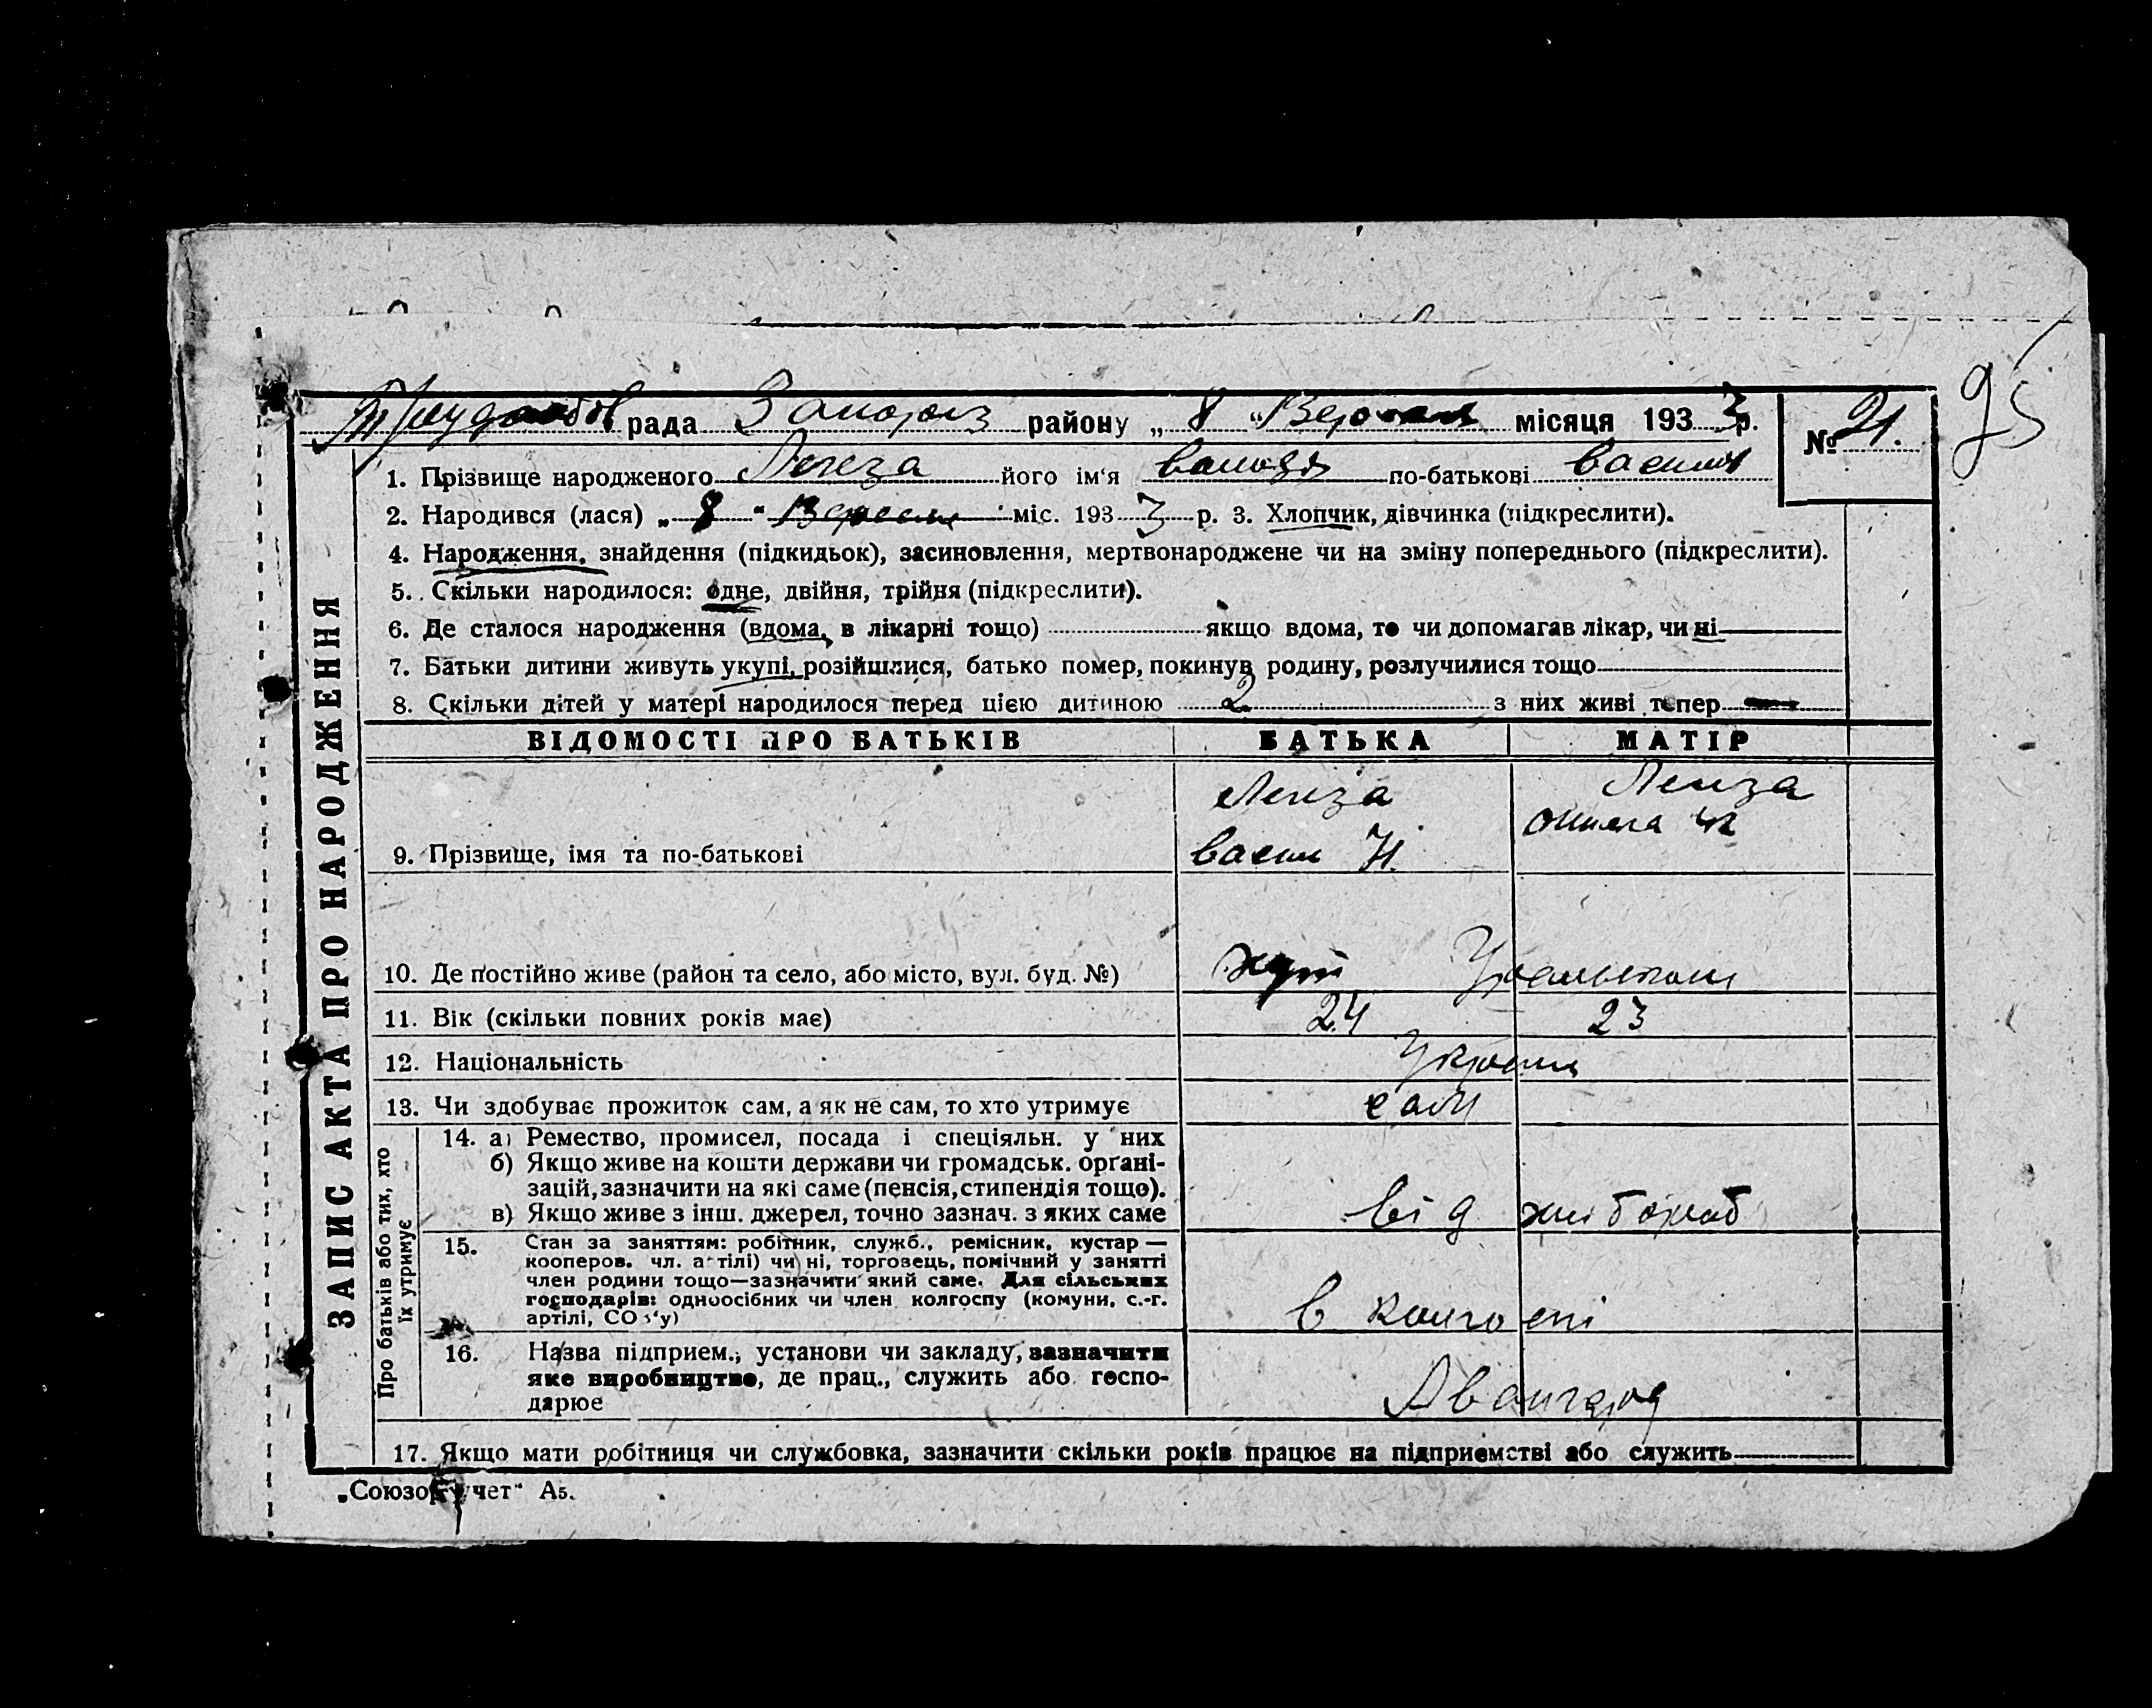 рада Запороз району „ 8 " Вересня місяця 193 3 р.
№ 21.
95
1. Прізвище народженого Легеза його ім'я Володя по-батькові Василів
2. Народився (лася) „ 8 " Вересня міс. 193 3 р. 3. Хлопчик, дівчинка (підкреслити).
4. Народження, знайдення (підкидьок), засиновлення, мертвонароджене чи на зміну попереднього (підкреслити).
5. Скільки народилося: одне, двійня, трійня (підкреслити).
6. Де сталося народження (вдома, в лікарні тощо) якщо вдома, то чи допомагав лікар, чи ні
7. Батьки дитини живуть укупі, розійшлися, батько помер, покинув родину, розлучилися тощо
8. Скільки дітей у матері народилося перед цією дитиною 2 з них живі тепер
ЗАПИС АКТА ПРО НАРОДЖЕННЯ
ВІДОМОСТІ ПРО БАТЬКІВ БАТЬКА МАТІР
9. Прізвище, імя та по-батькові
10. Де постійно живе (район та село, або місто, вул. буд. №) хут
11. Вік (скільки повних років має) 24 23
12. Національність Україн
13. Чи здобуває прожиток сам, а як не сам, то хто утримує сам
Про батьків або тих, хто
їх утримує
14. а) Ремество, промисел, посада і спеціяльн. у них
б) Якщо живе на кошти держави чи громадськ. орґані-
зацій, зазначити на які саме (пенсія, стипендія тощо).
в) Якщо живе з інш. джерел, точно зазнач. з яких саме від хлібороб
15. Стан за заняттям: робітник, служб., ремісник, кустар —
кооперов. чл. артілі) чи ні, торговець, помічний у занятті
член родини тощо—зазначити який саме. Для сільських
господарів: одноосібних чи член колгоспу (комуни, с.-г.
артілі, СОЗ'у) в колгоспі
16. Назва підприєм., установи чи закладу, зазначити
яке виробництво, де прац., служить або госпо-
дарює Авангард
17. Якщо мати робітниця чи службовка, зазначити скільки років працює на підприємстві або служить
А5.